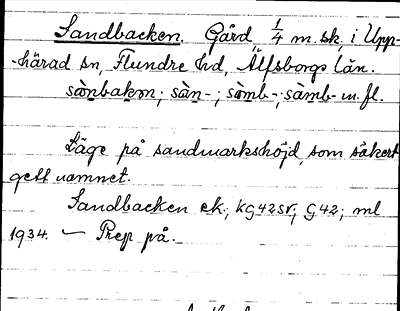 Sandbacken. Gård 1/4 m. sk, i Upp-
-härad sn, Flundre hd, Älfsborgs län.
sànbakən; sàn-; sòmb-; sàmb- m. fl.
Läge på sandmarkshöjd, som säkert
gett namnet.
Sandbacken ek., kG42sv, G42; ml
1934. — Prep på.